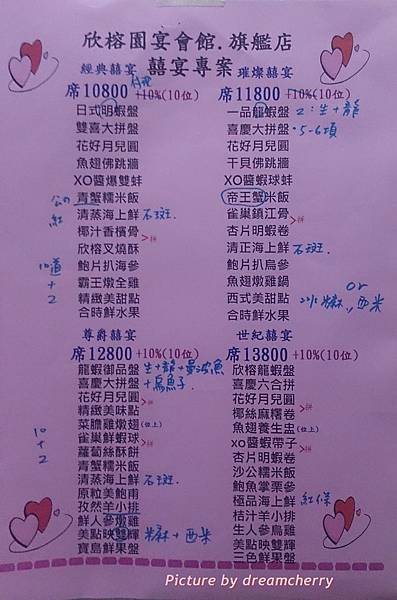 欣榕園宴會館.旗艦店
囍宴專案
經典囍宴
席10800+10%(10位)
日式明蝦盤
雙喜大拼盤
花好月兒圓
魚翅佛跳牆
XO醬爆雙蚌
青蟹糯米飯
清蒸海上鮮 石斑.
椰汁香檳骨
欣榕叉燒酥
鮑片扒海參
霸王燉全雞
精緻美甜點
合時鮮水果
公の
紅
10道
+
2
拼
璀璨囍宴
席11800+10%(10位)
一品龍蝦盤 2:生+龍
喜慶大拼盤 ·5-6項
花好月兒圓
干貝佛跳牆
XO醬蝦球蚌
帝王蟹米飯
雀巢鎮江骨
杏片明蝦卷
清正海上鮮 石斑.
鮑片扒烏參
魚翅燉雞鍋
西式美甜點
合時鮮水果
拼
or
西米
尊爵囍宴
席12800+10%(10位)
龍蝦御品盤 生+龍+曼波魚
喜慶大拼盤 +烏魚子
花好月兒圓
精緻美味點
菜膽雞燉翅(位上)
雀巢鮮蝦球
蘿蔔絲酥餅
青蟹糯米飯
清蒸海上鮮 石斑.
原粒美鮑甫
孜然羊小排
鮮人參燉雞
美點映雙輝 麻+西米
寶島鮮果盤
10
+
2
拼
拼
世紀囍宴
席13800+10%(10位)
欣榕龍蝦盤
喜慶六合拼
花好月兒圓
椰絲麻糬卷
魚翅養生盅(位上)
xo醬蝦帶子
杏片明蝦卷
沙公糯米飯
鮑魚掌栗參
極品海上鮮 紅條
桔汁羊小排
生人參烏雞
美點映雙輝
三色鮮果盤
拼
拼
Picture by dreamcherry